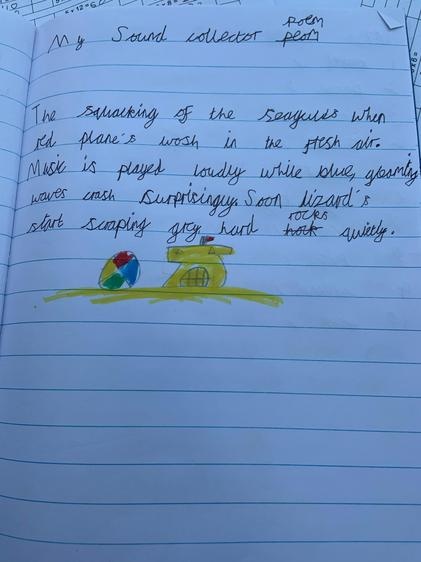 My Sound collector poem
peom
The squacking of the seagulls when
red plane's wosh in the fresh air.
Music is played loudly while blue, gloaming
waves crash surprisingly. Soon lizard's
start scraping grey hard rocks quietly.